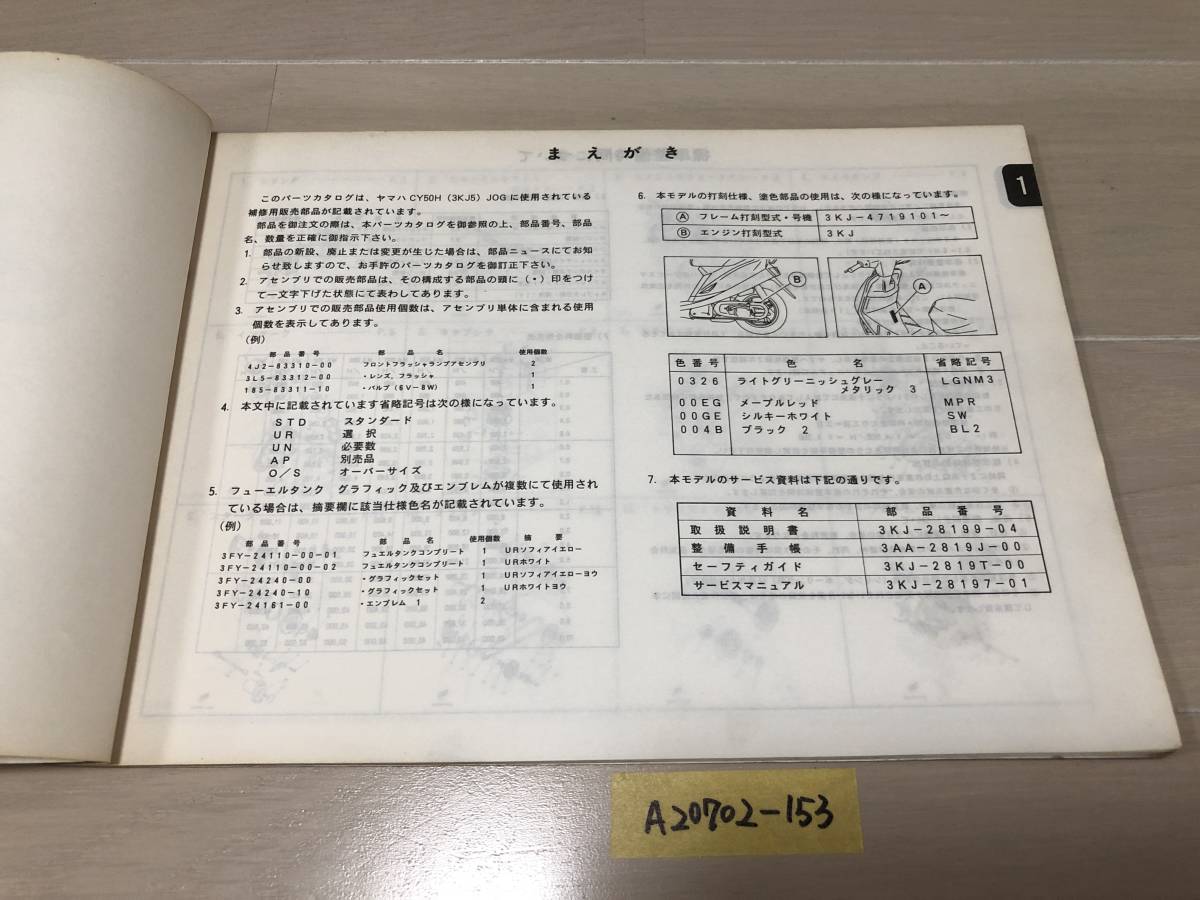 まえがき
1
このパーツカタログは、ヤマハCY50H（3KJ5）JOGに使用されている
補修用販売部品が記載されています。
部品を御注文の際は、本パーツカタログを御参照の上、部品番号、部品
名、数量を正確に御指示下さい。
1. 部品の新設、廃止または変更が生じた場合は、部品ニュースにてお知
らせ致しますので、お手許のパーツカタログを御訂正下さい。
2. アセンブリでの販売部品は、その構成する部品の頭に（・）印をつけ
て一文字下げた状態にて表わしてあります。
3. アセンブリでの販売部品使用個数は、アセンブリ単体に含まれる使用
個数を表示してあります。
（例）
部品番号 部品名 使用個数
4J2-83310-00 フロントフラッシャランプアセンブリ 2
3L5-83312-00 ・レンズ，フラッシャ 1
185-83311-10 ・バルブ（6V-8W） 1
4. 本文中に記載されています省略記号は次の様になっています。
STD スタンダード
UR 選択
UN 必要数
AP 別売品
O/S オーバーサイズ
5. フューエルタンク グラフィック及びエンブレムが複数にて使用され
ている場合は、摘要欄に該当仕様色名が記載されています。
（例）
部品番号 部品名 使用個数 摘要
3FY-24110-00-01 フュエルタンクコンプリート 1 URソフィアイエロー
3FY-24110-00-02 フュエルタンクコンプリート 1 URホワイト
3FY-24240-00 ・グラフィックセット 1 URソフィアイエローヨウ
3FY-24240-10 ・グラフィックセット 1 URホワイトヨウ
3FY-24161-00 ・エンブレム 1 2
6. 本モデルの打刻仕様、塗色部品の使用は、次の様になっています。
Ⓐ フレーム打刻型式・号機 3KJ-4719101～
Ⓑ エンジン打刻型式 3KJ
B
A
色番号 色名 省略記号
0326 ライトグリーニッシュグレー LGNM3
メタリック 3
00EG メープルレッド MPR
00GE シルキーホワイト SW
004B ブラック 2 BL2
7. 本モデルのサービス資料は下記の通りです。
資料名 部品番号
取扱説明書 3KJ-28199-04
整備手帳 3AA-2819J-00
セーフティガイド 3KJ-2819T-00
サービスマニュアル 3KJ-28197-01
A20702-153